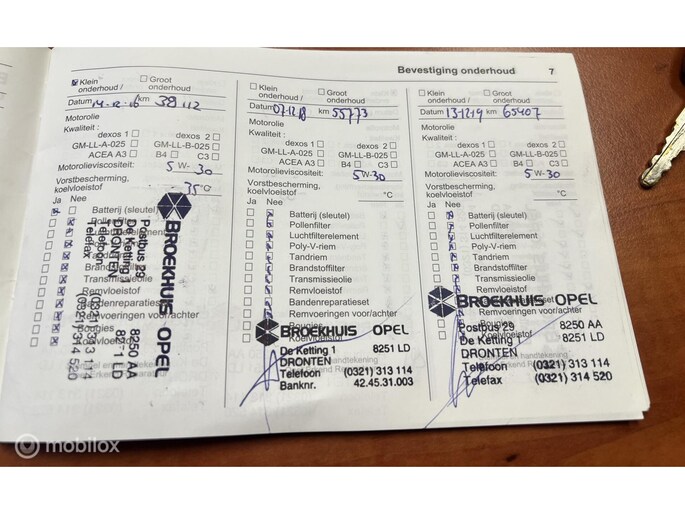 Bevestiging onderhoud 7
Klein onderhoud / Groot onderhoud
Datum 14-12-16 km 38112
Motorolie
Kwaliteit :
dexos 1 dexos 2
GM-LL-A-025 GM-LL-B-025
ACEA A3 B4 C3
Motorolieviscositeit: 5 W- 30
Vorstbescherming,
koelvloeistof -35 °C
Ja Nee
Batterij (sleutel)
Pollenfilter
Poly-V-riem
Tandriem
Brandstoffilter
Transmissieolie
Remvloeistof
Bandenreparatieset
Remvoeringen voor/achter
Bougies
Koelvloeistof
BROEKHUIS OPEL
Postbus 29 8250 AA
De Ketting 1 8251 LD
DRONTEN
Telefoon (0321) 313 114
Telefax (0321) 314 520
Klein onderhoud / Groot onderhoud /
Datum 07-12-18 km 55773
Motorolie
Kwaliteit :
dexos 1 dexos 2
GM-LL-A-025 GM-LL-B-025
ACEA A3 B4 C3
Motorolieviscositeit: 5 W- 30
Vorstbescherming,
koelvloeistof °C
Ja Nee
Batterij (sleutel)
Pollenfilter
Luchtfilterelement
Poly-V-riem
Tandriem
Brandstoffilter
Transmissieolie
Remvloeistof
Bandenreparatieset
Remvoeringen voor/achter
Bougies
Koelvloeistof
BROEKHUIS OPEL
De Ketting 1 8251 LD
DRONTEN
Telefoon (0321) 313 114
Banknr. 42.45.31.003
Klein onderhoud / Groot onderhoud /
Datum 13-12-19 km 65407
Motorolie
Kwaliteit :
dexos 1 dexos 2
GM-LL-A-025 GM-LL-B-025
ACEA A3 B4 C3
Motorolieviscositeit: 5 W- 30
Vorstbescherming,
koelvloeistof °C
Ja Nee
Batterij (sleutel)
Pollenfilter
Luchtfilterelement
Poly-V-riem
Tandriem
Brandstoffilter
Transmissieolie
Remvloeistof
Remvoeringen voor/achter
BROEKHUIS OPEL
Postbus 29 8250 AA
De Ketting 1 8251 LD
DRONTEN
Telefoon (0321) 313 114
Telefax (0321) 314 520
mobilox